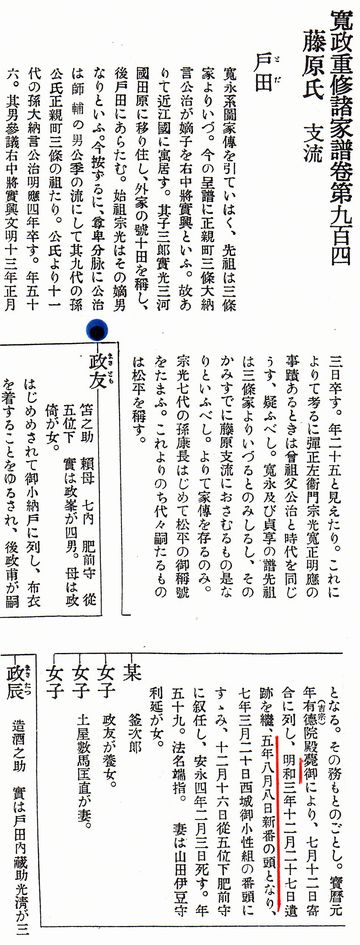 寛政重修諸家譜巻第九百四
藤原氏　支流
戸田
とだ
寛永系圖家傳を引ていはく、先祖は三條
家よりいづ。今の呈譜に正親町三條大納
言公治が嫡子を右中將實興といふ。故あ
りて近江國に寓居す。其子三郎實光三河
國田原に移り住し、外家の號十田を稱し、
後戸田にあらたむ。始祖宗光はその嫡男
なりといふ。今按するに、尊卑分脈に公治
は師輔の男公季の流にして其九代の孫
公氏正親町三條の祖たり。公氏より十一
代の孫大納言公治明應四年卒す。年五十
六。其男參議右中將實興文明十三年正月
三日卒す。年二十五と見えたり。これに
よりて考るに彈正左衞門宗光寛正明應の
事蹟あるときは曾祖父公治と時代を同じ
うす、疑ふべし。寛永及び貞享の譜先祖
は三條家よりいづるとのみしるし、その
かみすでに藤原支流におさむるもの是な
りといふべし。よりて家傳を存るのみ。
宗光七代の孫康長はじめて松平の御稱號
をたまふ。これよりのち代々嗣たるもの
は松平を稱す。
政友
笘之助　賴母　七内　肥前守　從
五位下　實は政峯が四男。母は政
倚が女。
はじめめされて御小納戸に列し、布衣
を着することをゆるされ、後政甫が嗣
となる。その務ものごとし。寶暦元
年有德院殿薨御により、七月十二日寄
(吉宗)
合に列し、明和三年十二月二十七日遺
跡を繼、五年八月八日新番の頭となり、
七年三月二十日西城御小性組の番頭に
すゝみ、十二月十六日從五位下肥前守
に叙任し、安永四年二月三日死す。年
五十九。法名端指。　妻は山田伊豆守
利延が女。
某
釜次郎
女子
政友が養女。
女子
土屋數馬匡直が妻。
女子
政辰
造酒之助　實は戸田内藏助光淸が三